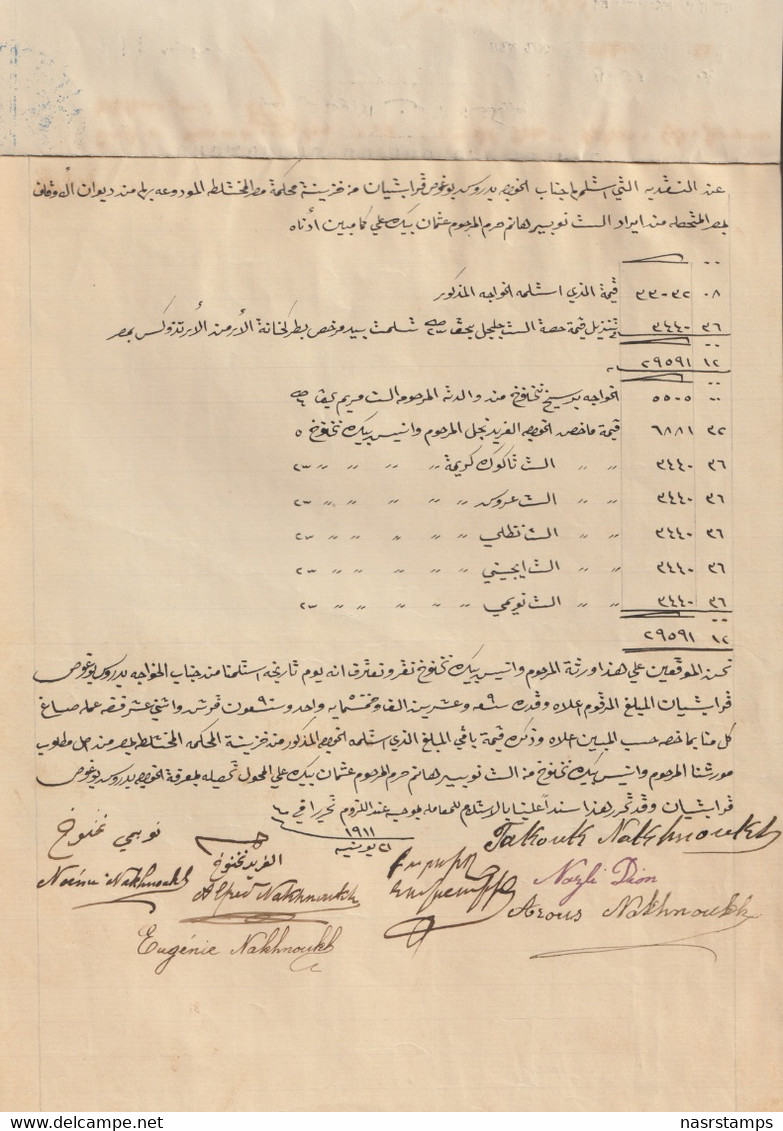 عن النقديه التي استلمها جناب الخواجه بدروس بوغوص قرابتيان من خزينة محكمة مصر المختلطه المودوعه برها من ديوان الأوقاف
بمصر المتحصله من ايراد الست نوبير هانم حرم المرحوم عثمان بيك علي كما مبين أدناه
٠٨ ٣٣٠٣٢ قيمة الذي استلمه الخواجه المذكور
٣٦ ٣٤٤٠ تنزيل قيمة حصة الست بحق تسلمت بيد مرخص بطركخانة الأرمن الأرتدوكس بمصر
١٢ ٢٩٥٩١
٠٠ ٥٥٠٥ الخواجه نخنوخ من والدته المرحومه الست مريم بحق
٣٢ ٦٨٨١ قيمة ما خص الخواجه الفريد نجل المرحوم وانيس بيك نخنوخ ٥
٣٦ ٣٤٤٠ 〃 〃 الست تاكوك كريمة 〃 〃 〃 〃 〃 ٢٣
٣٦ ٣٤٤٠ 〃 〃 الست عروس 〃 〃 〃 〃 〃 〃 ٢٣
٣٦ ٣٤٤٠ 〃 〃 الست نظلي 〃 〃 〃 〃 〃 〃 ٢٣
٣٦ ٣٤٤٠ 〃 〃 الست ايجيني 〃 〃 〃 〃 〃 〃 ٢٣
٣٦ ٣٤٤٠ 〃 〃 الست نويمي 〃 〃 〃 〃 〃 〃 ٢٣
١٢ ٢٩٥٩١
نحن الموقعين علي هذا ورثة المرحوم وانيس بيك نخنوخ نقر ونعترف انه يوم تاريخه استلمنا من جناب الخواجه بدروس بوغوص
قرابتيان المبلغ المرقوم اعلاه وقدره تسعه وعشرين الف وخمسمايه واحد وتسعون قرش واثني عشر فضه عمله صاغ
كل منا بما خصه حسب المبين اعلاه وذلك قيمة باقي المبلغ الذي استلمه الخواجه المذكور من خزينة المحكمه المختلطه بمصر من اصل مطلوب
مورثنا المرحوم وانيس بيك نخنوخ من الست نوبير هانم حرم المرحوم عثمان بيك علي المحول تحصيله بمعرفة الخواجه بدروس بوغوص
قرابتيان وقد تحرر هذا سنداً علينا بالاستلام للمعامله بموجبه عند اللزوم تحريرا في
٢١ يونيه ١٩١١
Takouk Nakhnoukh
نويمي نخنوخ
الفريد نخنوخ
Noémi Nakhnoukh
Alfred Nakhnoukh
Nazli Dion
Arous Nakhnoukh
Eugénie Nakhnoukh
nasrstamps